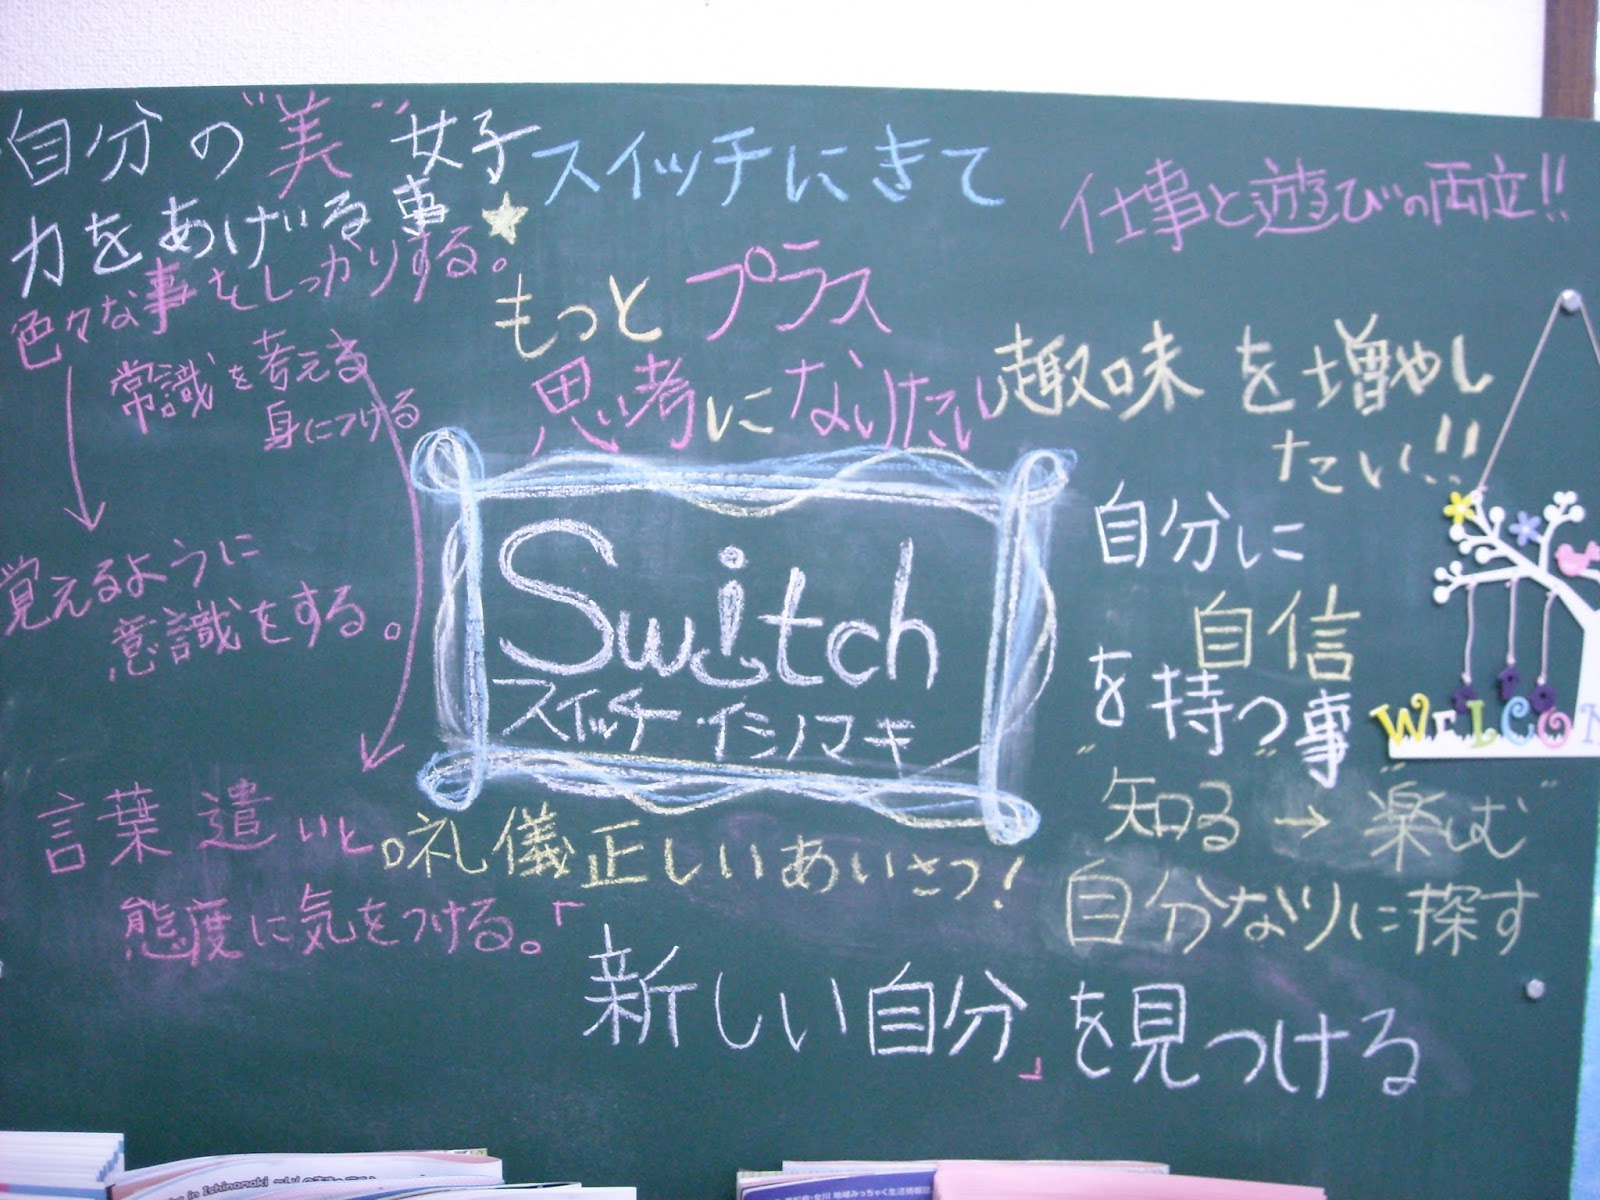 自分の"美"女子
力をあげいる事
色々な事をしっかりする。
常識を考える
身につける
覚えるように
意識をする。
言葉遣いと
態度に気をつける。
スイッチにきて
もっとプラス
思い考になりたい
仕事と遊びの両立!!
趣味を増やし
たい!!
Switch
スイッチ・イシノマキ
自分に
自信
を持つ事
"知る"→"楽しむ"
自分なりに探す
礼儀正しいあいさつ!
「新しい自分」を見つける
WELCO
in Ishinomaki
女川 地域みっちゃく生活情報誌